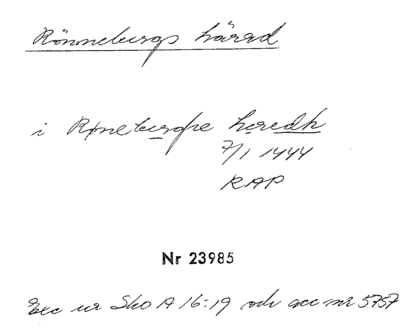 Rönnebergs härad
i Røneburgæ heredh
7/1 1444
RAP
Nr 23985
Exc ur Sko A 16:19 och acc nr 5757